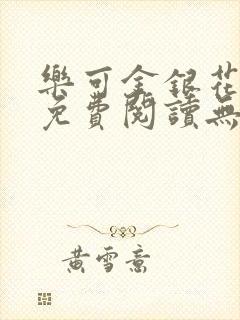 樂可金銀花
免費閱讀無
黃雪意